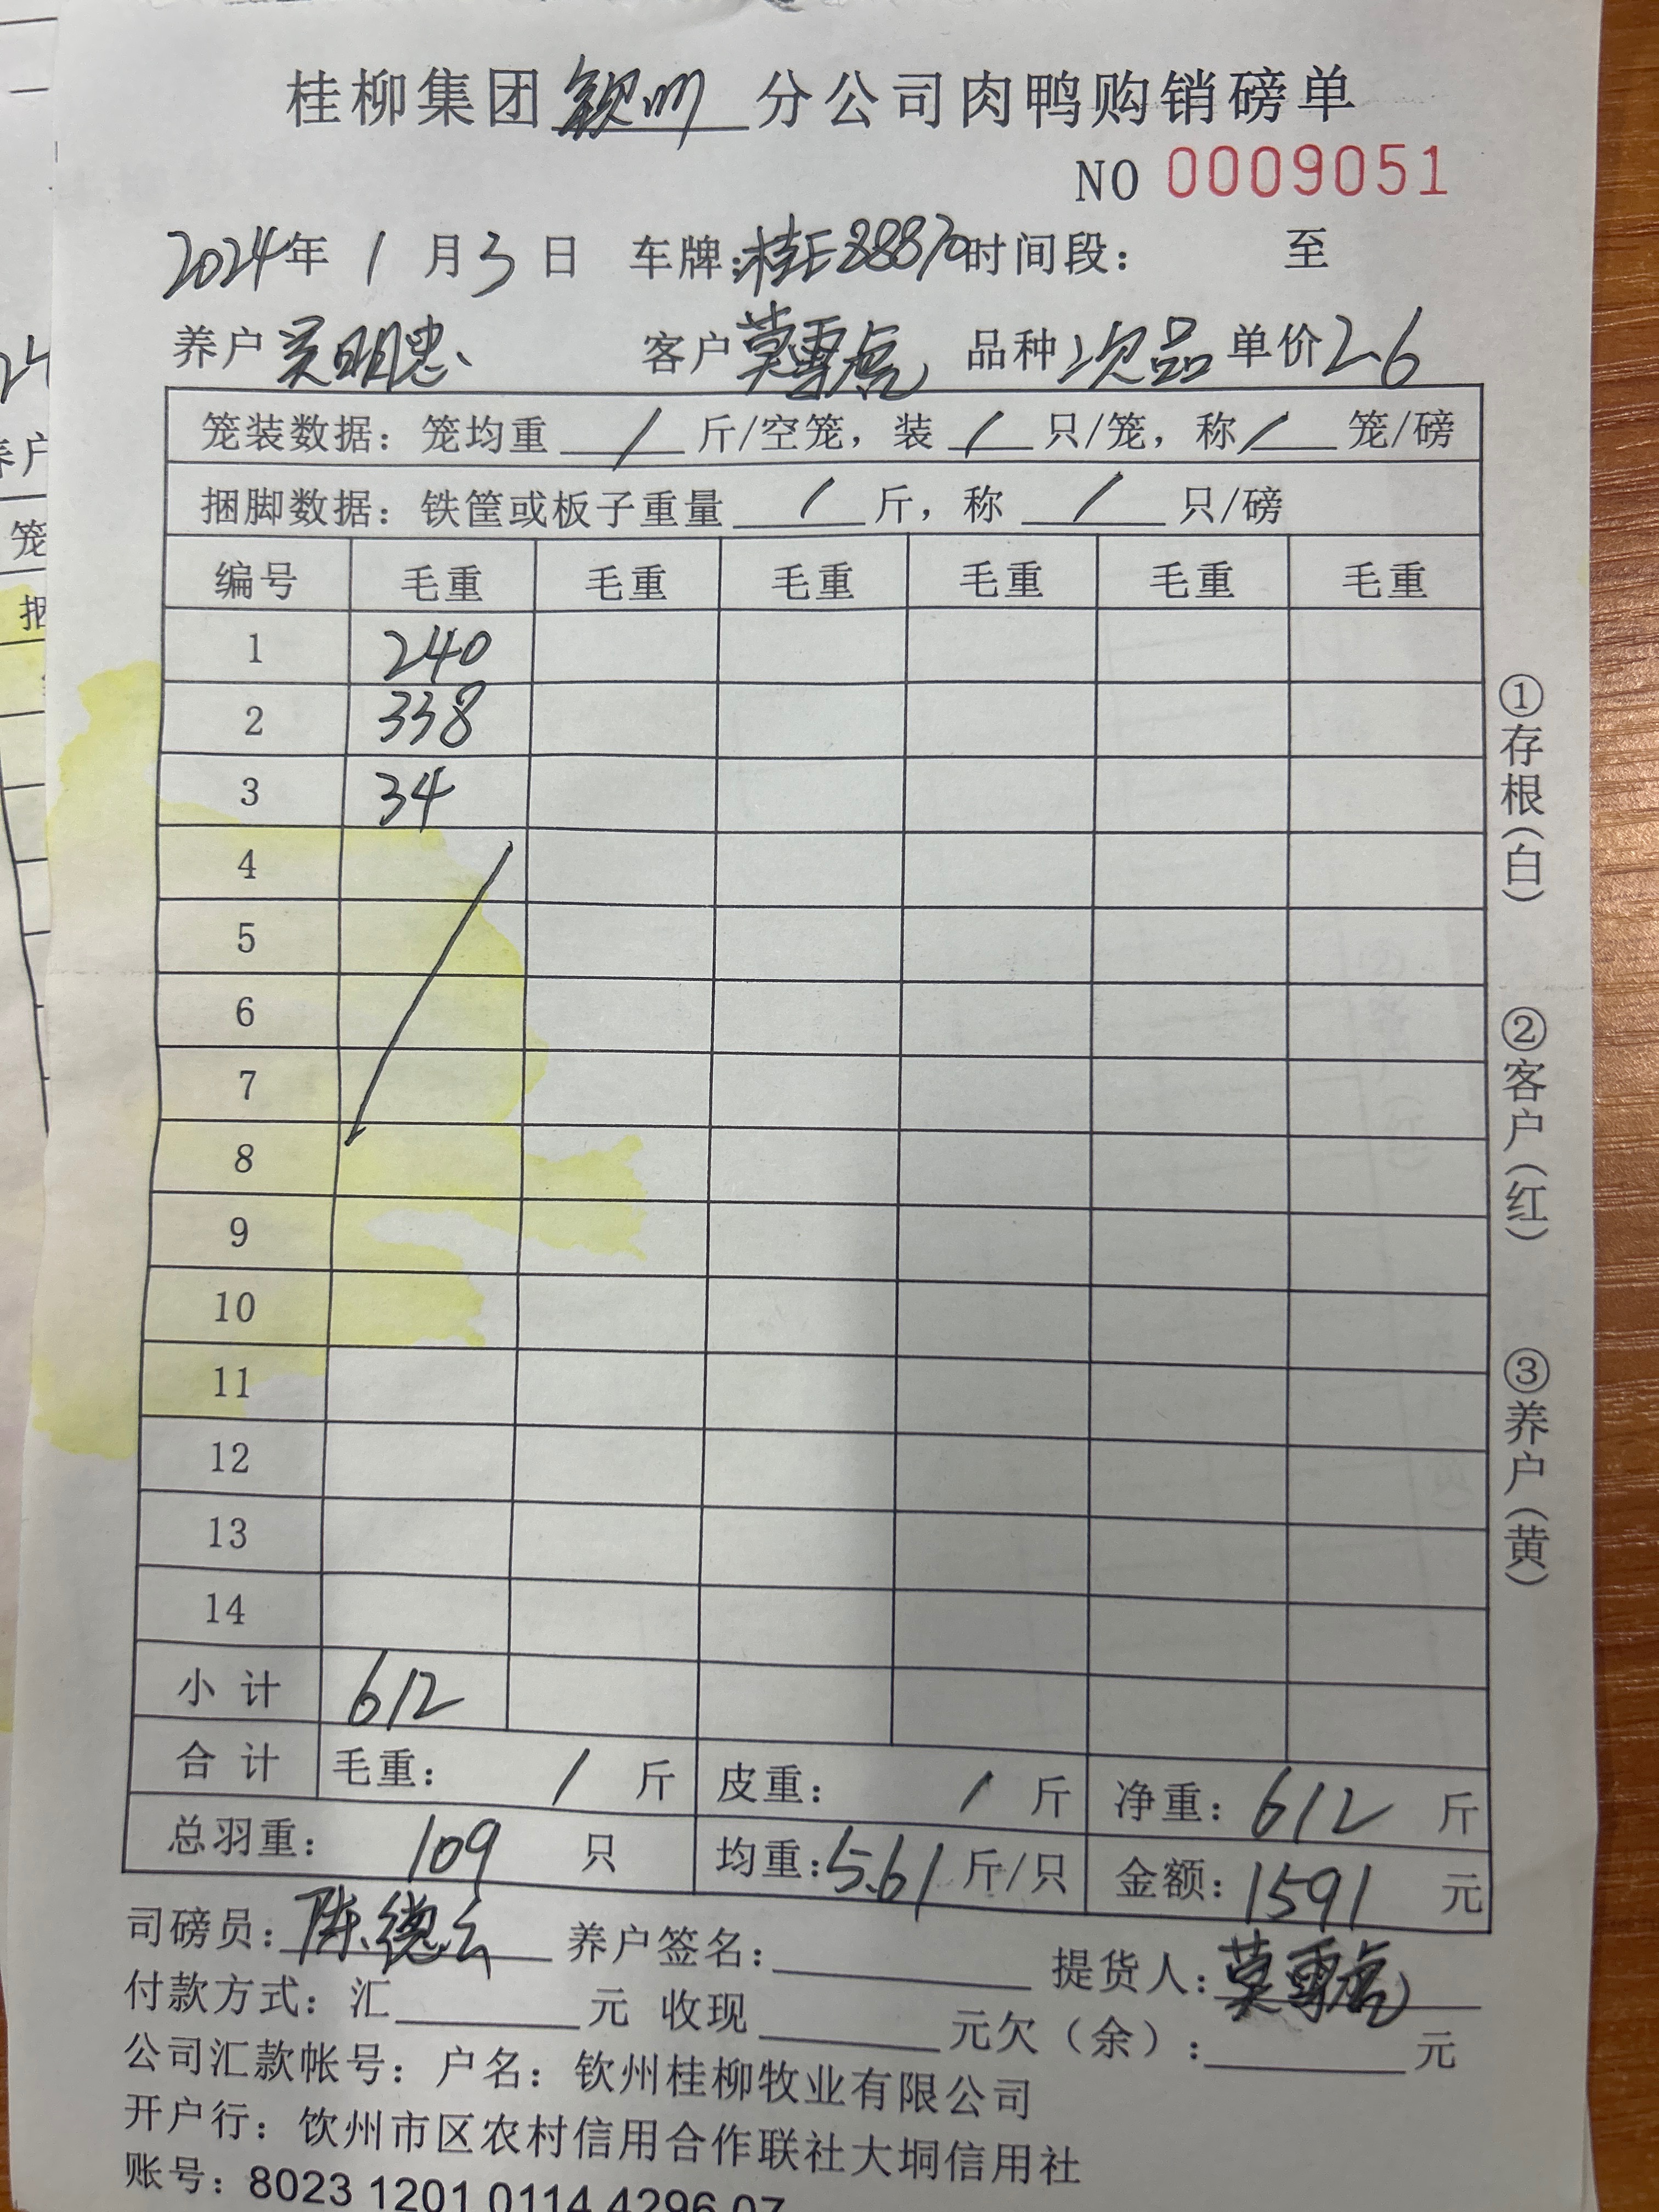 桂柳集团钦州分公司肉鸭购销磅单
NO 0009051
2024年 1 月 3 日 车牌:桂E88870时间段: 至
养户 吴明忠 客户 莫雪亮 品种 次品 单价 2.6
笼装数据:笼均重 / 斤/空笼,装 / 只/笼,称 / 笼/磅
捆脚数据:铁筐或板子重量 / 斤,称 / 只/磅
编号 毛重 毛重 毛重 毛重 毛重 毛重
1 240
2 338
3 34
4
5
6
7
8
9
10
11
12
13
14
小 计 612
合 计 毛重: / 斤 皮重: / 斤 净重: 612 斤
总羽重: 109 只 均重:5.61 斤/只 金额: 1591 元
司磅员: 陈德云 养户签名: 提货人: 莫雪亮
付款方式:汇 元 收现 元欠(余): 元
公司汇款帐号:户名:钦州桂柳牧业有限公司
开户行:钦州市区农村信用合作联社大垌信用社
账号:8023 1201 0114 4296 07
①存根(白)
②客户(红)
③养户(黄)